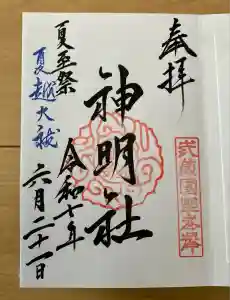 奉拝
武蔵國
神明社
夏至祭
令和七年
夏越大祓
六月二十一日